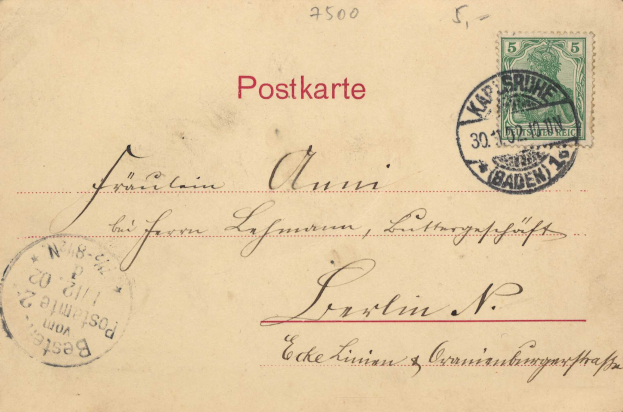 7500 5,-
5 5
DEUTSCHES REICH
Postkarte
KARLSRUHE
30.11.02.
(BADEN) 1
Fräulein Anni
bei Herrn Lehmann, Buttergeschäft
Berlin N.
Ecke Linien & Oranienburgerstraße
Bestellt
vom
Postamte 2
1/12 02
N